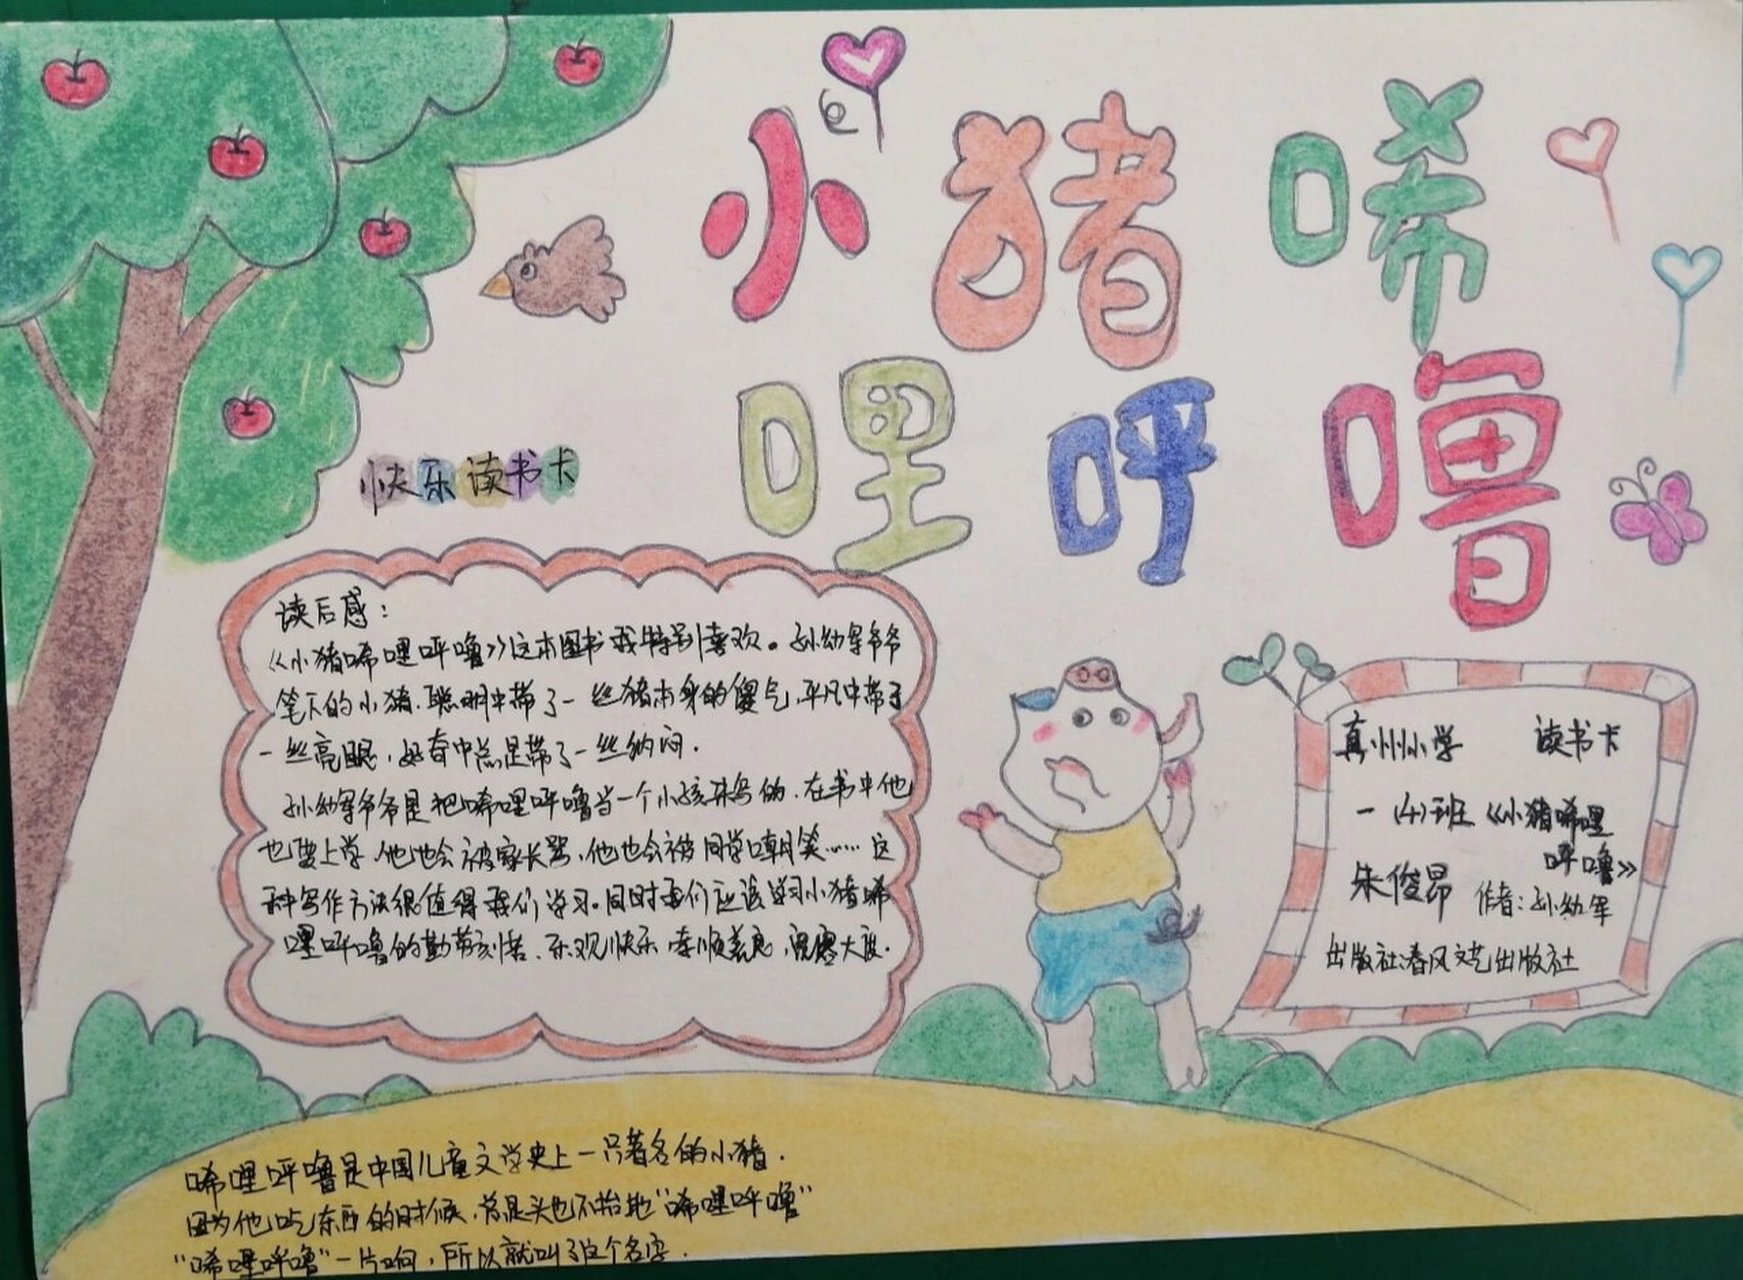 小猪唏
哩呼噜
快乐读书卡
读后感：
《小猪唏哩呼噜》这本图书我特别喜欢。孙幼军爷爷
笔下的小猪，聪明中带了一丝猪本身的傻气，平凡中带了
一丝亮眼，好奇中总是带了一丝纳闷．
孙幼军爷爷是把唏哩呼噜当一个小孩来写的．在书中他
也要上学，他也会被家长骂，他也会被同学嘲笑……这
种写作方法很值得我们学习。同时我们应该学习小猪唏
哩呼噜的勤劳刻苦、乐观快乐、孝顺善良，宽容大度．
真州小学 读书卡
一（4）班 《小猪唏哩
呼噜》
朱俊昂 作者：孙幼军
出版社：春风文艺出版社
唏哩呼噜是中国儿童文学史上一只著名的小猪．
因为他吃东西的时候，总是头也不抬地“唏哩呼噜”
“唏哩呼噜”一片响，所以就叫了这个名字．